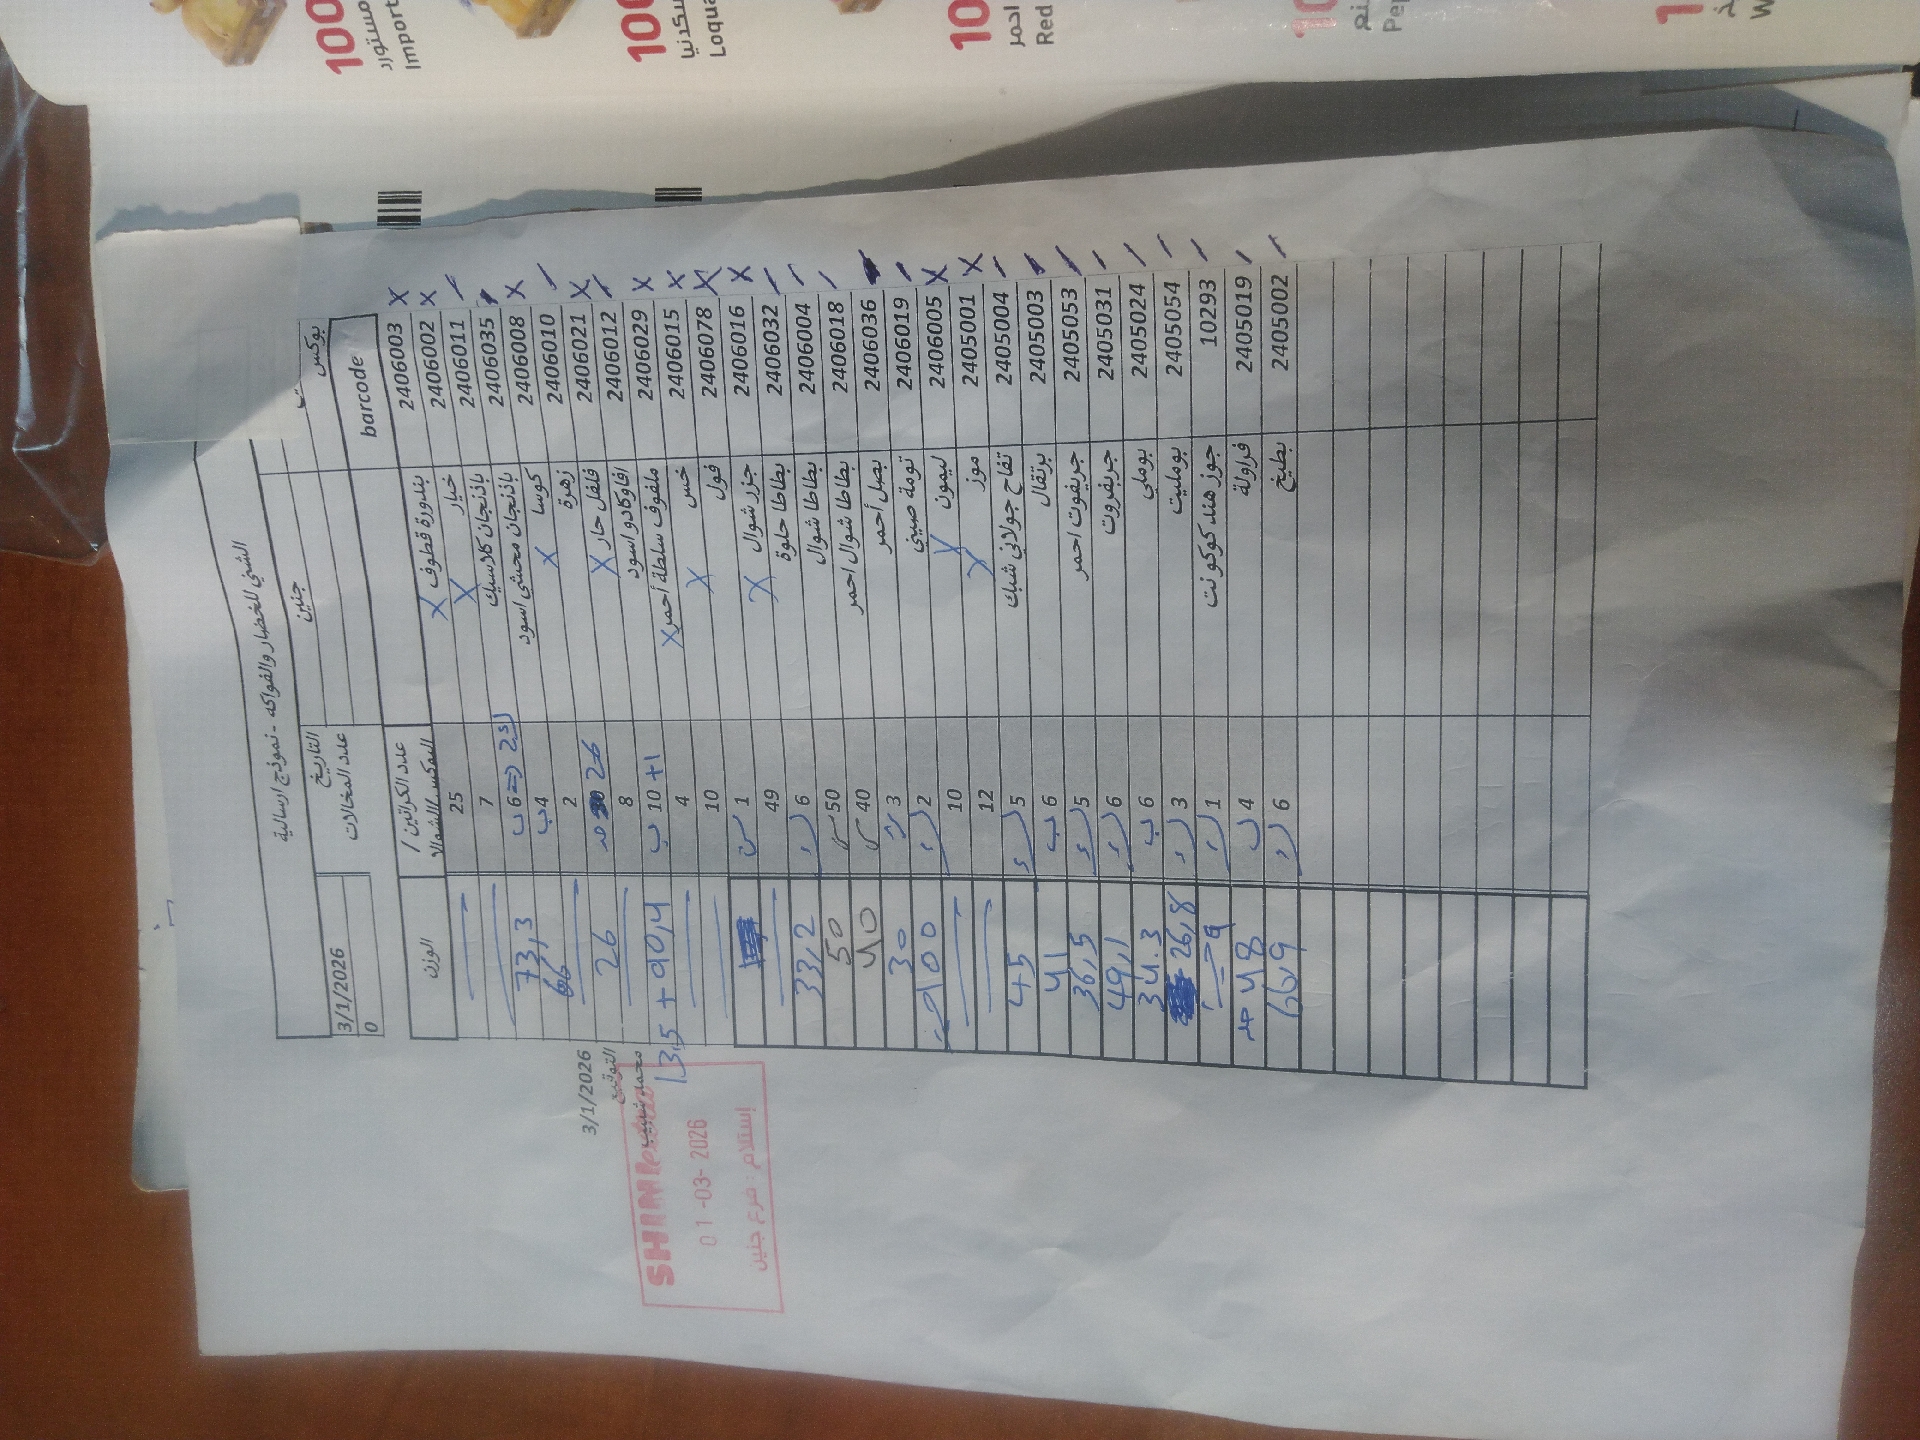 100
مستورد
Import
100
سكدنيا
10
احمر
Red
الشني للخضار والفواكه - نموذج ارسالية
جنين التاريخ 3/1/2026
بوكس عدد المخالات 0
barcode عدد الكراتين / البوكس/الشوال الوزن
2406003 X بندورة قطوف X 25
2406002 X خيار X 7
2406011 باذنجان كلاسيك 6 ب 73,3
2406035 باذنجان محشي اسود 4 ب 66,
2406008 X كوسا X 2
2406010 زهرة 26 26
2406021 X فلفل حار X 8
2406012 افاوكادو اسود 10 +1 ب 13,5 + 90,4
2406029 X ملفوف سلطة أحمر X 4
2406015 X خس X 10
2406078 X فول 1
2406016 X جزر شوال X 49
2406032 بطاطا حلوة 6 33,2
2406004 بطاطا شوال 50 50
2406018 بطاطا شوال احمر 40 40
2406036 بصل أحمر 3 30
2406019 تومة صيني 2 900
2406005 X ليمون X 10
2405001 X موز X 12
2405004 تفاح جولاني شبك 5 45
2405003 برتقال 6 ب 41
2405053 جريفوت احمر 5 36,5
2405031 جريفروت 6 49,1
2405024 بوملي 6 ب 34.3
2405054 بومليت 3 26,8
10293 جوز هند كوكونت 1 9
2405019 فراولة 4 ب 48
2405002 بطيخ 6 66,9
3/1/2026
التوقيع
SHINI
01-03-2026
إستلام : فرع جنين